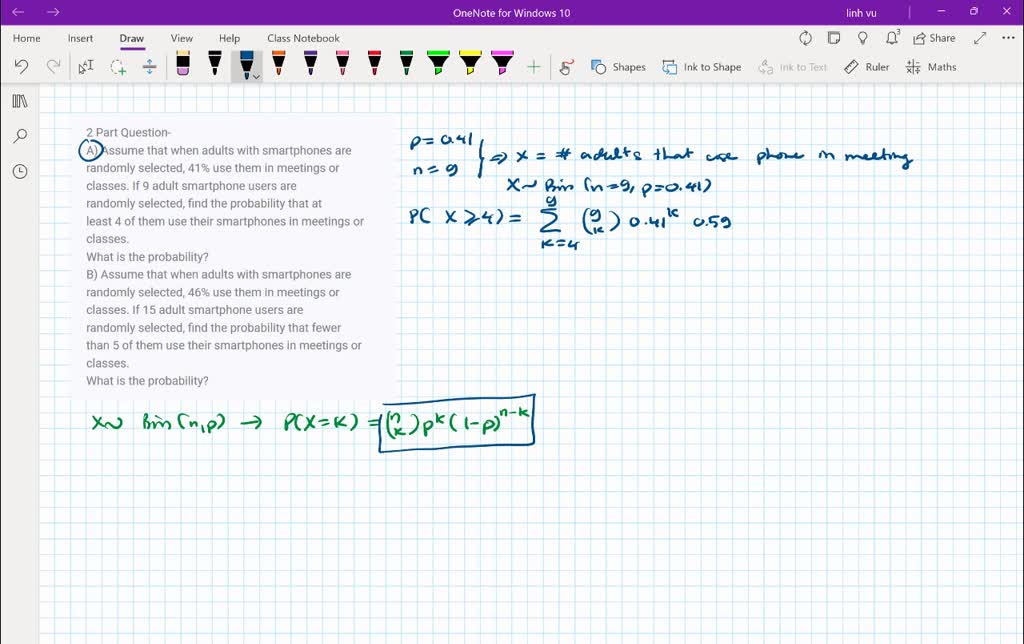 OneNote for Windows 10
linh vu
Home Insert Draw View Help Class Notebook
Share
Shapes Ink to Shape Ink to Text Ruler Maths
2 Part Question-
A) Assume that when adults with smartphones are
randomly selected, 41% use them in meetings or
classes. If 9 adult smartphone users are
randomly selected, find the probability that at
least 4 of them use their smartphones in meetings or
classes.
What is the probability?
B) Assume that when adults with smartphones are
randomly selected, 46% use them in meetings or
classes. If 15 adult smartphone users are
randomly selected, find the probability that fewer
than 5 of them use their smartphones in meetings or
classes.
What is the probability?
p = 0.41
n = 9
⇒ X = # adults that use phone in meeting
X ~ Bin (n=9, p=0.41)
P( X ⩾ 4) = ∑_{k=4}^{9} (9 k) 0.41^k 0.59
X ~ Bin (n,p) → P(X=k) = (n k) p^k (1-p)^{n-k}